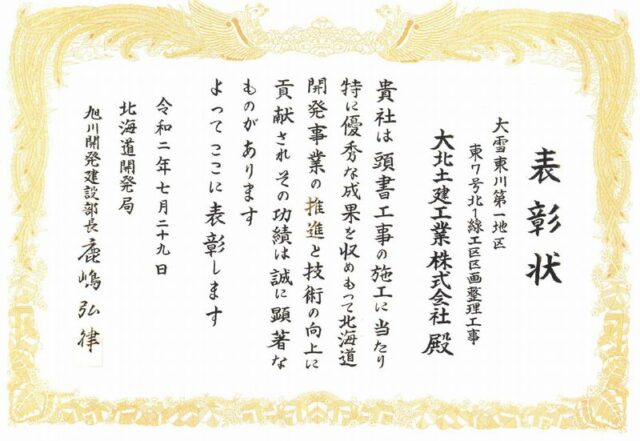 表彰状
大雪東川第一地区
東7号北1線工区区画整理工事
大北土建工業株式会社 殿
貴社は頭書工事の施工に当たり
特に優秀な成果を収めもって北海道
開発事業の推進と技術の向上に
貢献されその功績は誠に顕著な
ものがあります
よってここに表彰します
令和二年七月二十九日
北海道開発局
旭川開発建設部長 鹿嶋弘律